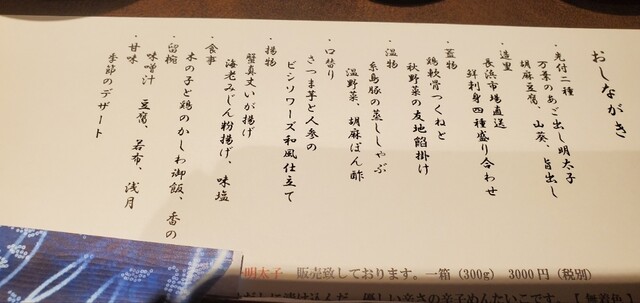 おしながき
・先付二種
万葉のあご出し明太子
胡麻豆腐、山葵、旨出し
・造里
長浜市場直送
鮮刺身四種盛り合わせ
・蓋物
鶏軟骨つくねと
秋野菜の友地餡掛け
・温物
糸島豚の蒸ししゃぶ
温野菜、胡麻ぽん酢
・口替り
さつま芋と人参の
ビシソワーズ和風仕立て
・揚物
蟹真丈いが揚げ
海老みじん粉揚げ、味塩
・食事
木の子と鶏のかしわ御飯、香の
・留椀
味噌汁 豆腐、若布、浅月
・甘味
季節のデザート
明太子 販売致しております。一箱(300g) 3000円(税別)